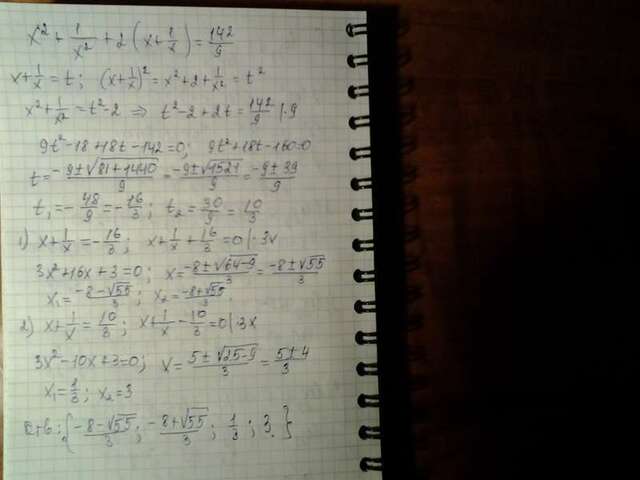 x² + 1/x² + 2(x + 1/x) = 142/9
x + 1/x = t; (x + 1/x)² = x² + 2 + 1/x² = t²
x² + 1/x² = t² - 2 ⇒ t² - 2 + 2t = 142/9 |·9
9t² - 18 + 18t - 142 = 0; 9t² + 18t - 160 = 0
t = (-9 ± √(81 + 1440))/9 = (-9 ± √1521)/9 = (-9 ± 39)/9
t₁ = -48/9 = -16/3; t₂ = 30/9 = 10/3
1) x + 1/x = -16/3; x + 1/x + 16/3 = 0 |·3x
3x² + 16x + 3 = 0; x = (-8 ± √(64 - 9))/3 = (-8 ± √55)/3
x₁ = (-8 - √55)/3; x₂ = (-8 + √55)/3.
2) x + 1/x = 10/3; x + 1/x - 10/3 = 0 |·3x
3x² - 10x + 3 = 0; x = (5 ± √(25 - 9))/3 = (5 ± 4)/3
x₁ = 1/3; x₂ = 3
Отв: {(-8 - √55)/3; (-8 + √55)/3; 1/3; 3.}